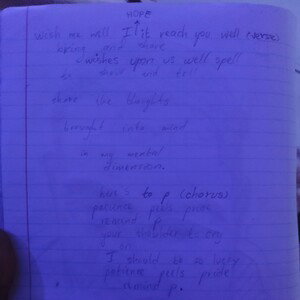 HOPE
wish me well I it reach you well (verse)
bring and share
wishes upon us well spell
to shine and tell
share the thoughts
brought into mind
in my mental
dimension.
here's to p (chorus)
patience peels pride
remind p
your shoulder to cry
on
I should be so lucky
patience peels pride
remind p.